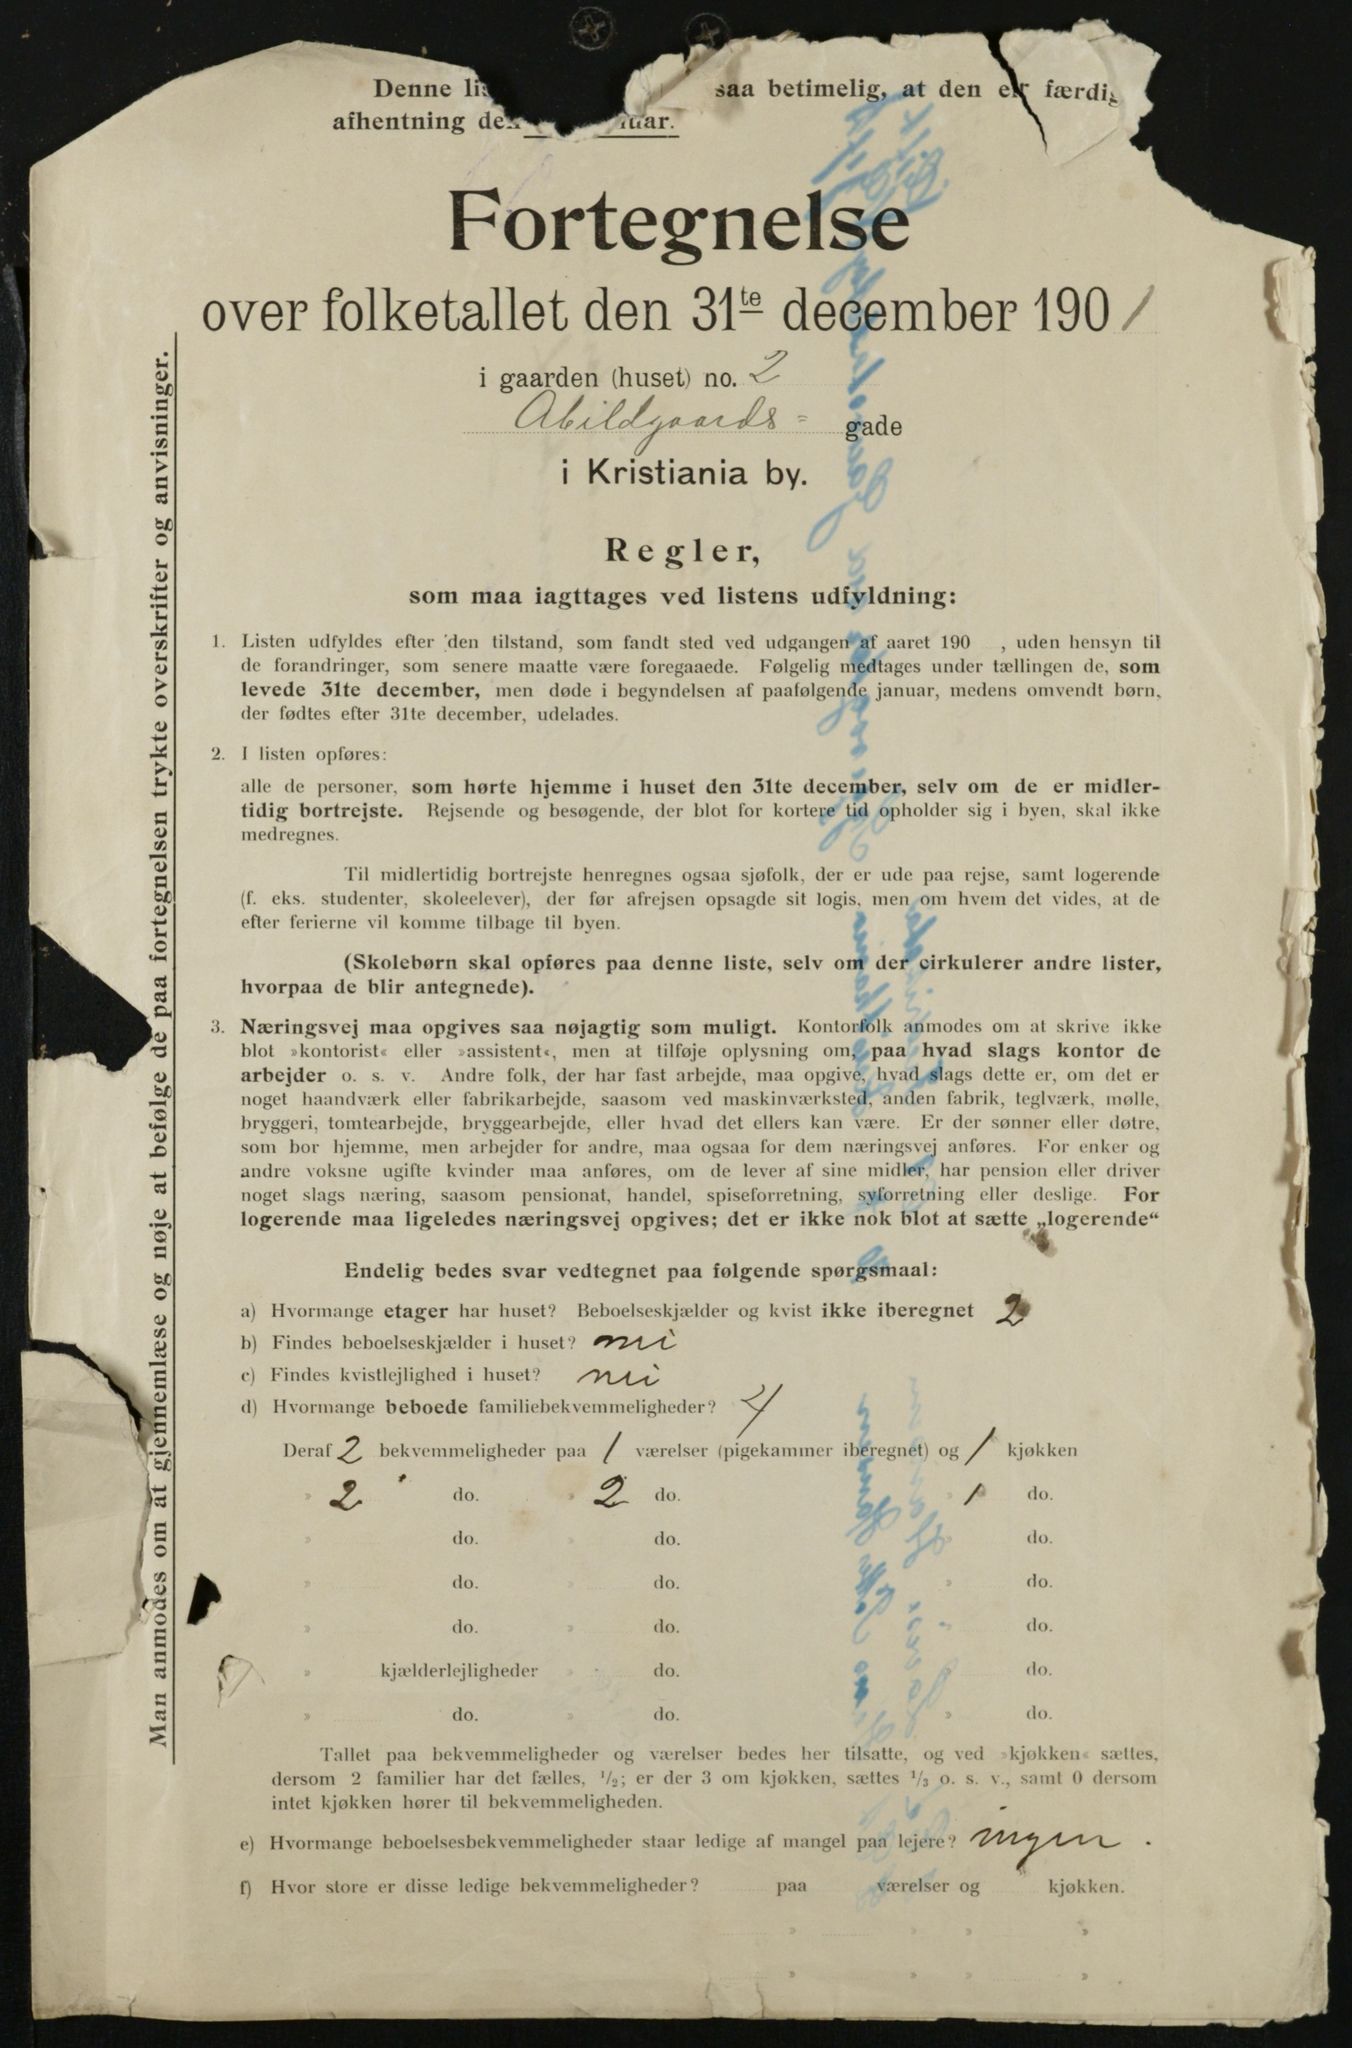 Denne saa betimelig, at den er færdig
afhentning den
Fortegnelse
over folketallet den 31te december 1901
i gaarden (huset) no. 2
Abildgaards- gade
i Kristiania by.
Regler,
som maa iagttages ved listens udfyldning:
1. Listen udfyldes efter den tilstand, som fandt sted ved udgangen af aaret 190 , uden hensyn til
de forandringer, som senere maatte være foregaaede. Følgelig medtages under tællingen de, som
levede 31te december, men døde i begyndelsen af paafølgende januar, medens omvendt børn,
der fødtes efter 31te december, udelades.
2. I listen opføres:
alle de personer, som hørte hjemme i huset den 31te december, selv om de er midler-
tidig bortrejste. Rejsende og besøgende, der blot for kortere tid opholder sig i byen, skal ikke
medregnes.
Til midlertidig bortrejste henregnes ogsaa sjøfolk, der er ude paa rejse, samt logerende
(f. eks. studenter, skoleelever), der før afrejsen opsagde sit logis, men om hvem det vides, at de
efter ferierne vil komme tilbage til byen.
(Skolebørn skal opføres paa denne liste, selv om der cirkulerer andre lister,
hvorpaa de blir antegnede).
3. Næringsvej maa opgives saa nøjagtig som muligt. Kontorfolk anmodes om at skrive ikke
blot »kontorist« eller »assistent«, men at tilføje oplysning om, paa hvad slags kontor de
arbejder o. s. v. Andre folk, der har fast arbejde, maa opgive, hvad slags dette er, om det er
noget haandværk eller fabrikarbejde, saasom ved maskinværksted, anden fabrik, teglværk, mølle,
bryggeri, tomtearbejde, bryggearbejde, eller hvad det ellers kan være. Er der sønner eller døtre,
som bor hjemme, men arbejder for andre, maa ogsaa for dem næringsvej anføres. For enker og
andre voksne ugifte kvinder maa anføres, om de lever af sine midler, har pension eller driver
noget slags næring, saasom pensionat, handel, spiseforretning, syforretning eller deslige. For
logerende maa ligeledes næringsvej opgives; det er ikke nok blot at sætte „logerende“
Endelig bedes svar vedtegnet paa følgende spørgsmaal:
a) Hvormange etager har huset? Beboelseskjælder og kvist ikke iberegnet 2
b) Findes beboelseskjælder i huset? nei
c) Findes kvistlejlighed i huset? nei
d) Hvormange beboede familiebekvemmeligheder? 4
Deraf 2 bekvemmeligheder paa 1 værelser (pigekammer iberegnet) og 1 kjøkken
» 2 do. » 2 do. » 1 do.
» do. » do. » do.
» do. » do. » do.
» do. » do. » do.
» kjælderlejligheder » do. » do.
» do. » do. » do.
Tallet paa bekvemmeligheder og værelser bedes her tilsatte, og ved »kjøkken« sættes,
dersom 2 familier har det fælles, 1/2; er der 3 om kjøkken, sættes 1/3 o. s. v., samt 0 dersom
intet kjøkken hører til bekvemmeligheden.
e) Hvormange beboelsesbekvemmeligheder staar ledige af mangel paa lejere? ingen.
f) Hvor store er disse ledige bekvemmeligheder? paa værelser og kjøkken.
» »
» »
Man anmodes om at gjennemlæse og nøje at befølge de paa fortegnelsen trykte overskrifter og anvisninger.